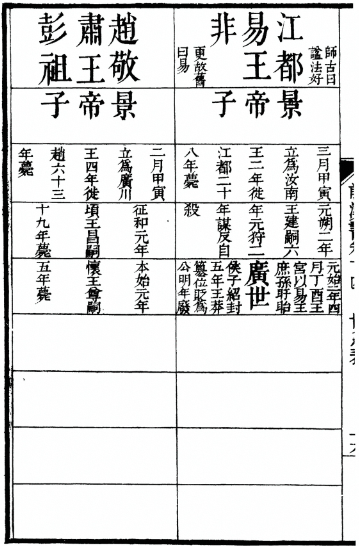 江都
易王
非
師古曰
諡法好
更故舊
曰易
景
帝
子
三月甲寅
立為汝南
王二年徙
江都二十
八年薨
元朔二年
王建嗣六
年元狩二
年謀反自
殺
元始二年四
月丁酉王
宮以易王
庶孫盱眙
侯子紹封
五年王莽
篡位貶為
公明年廢
廣世
趙敬
肅王
彭祖
景
帝
子
二月甲寅
立為廣川
王四年徙
趙六十三
年薨
征和元年
頃王昌嗣
十九年薨
本始元年
懷王尊嗣
五年薨